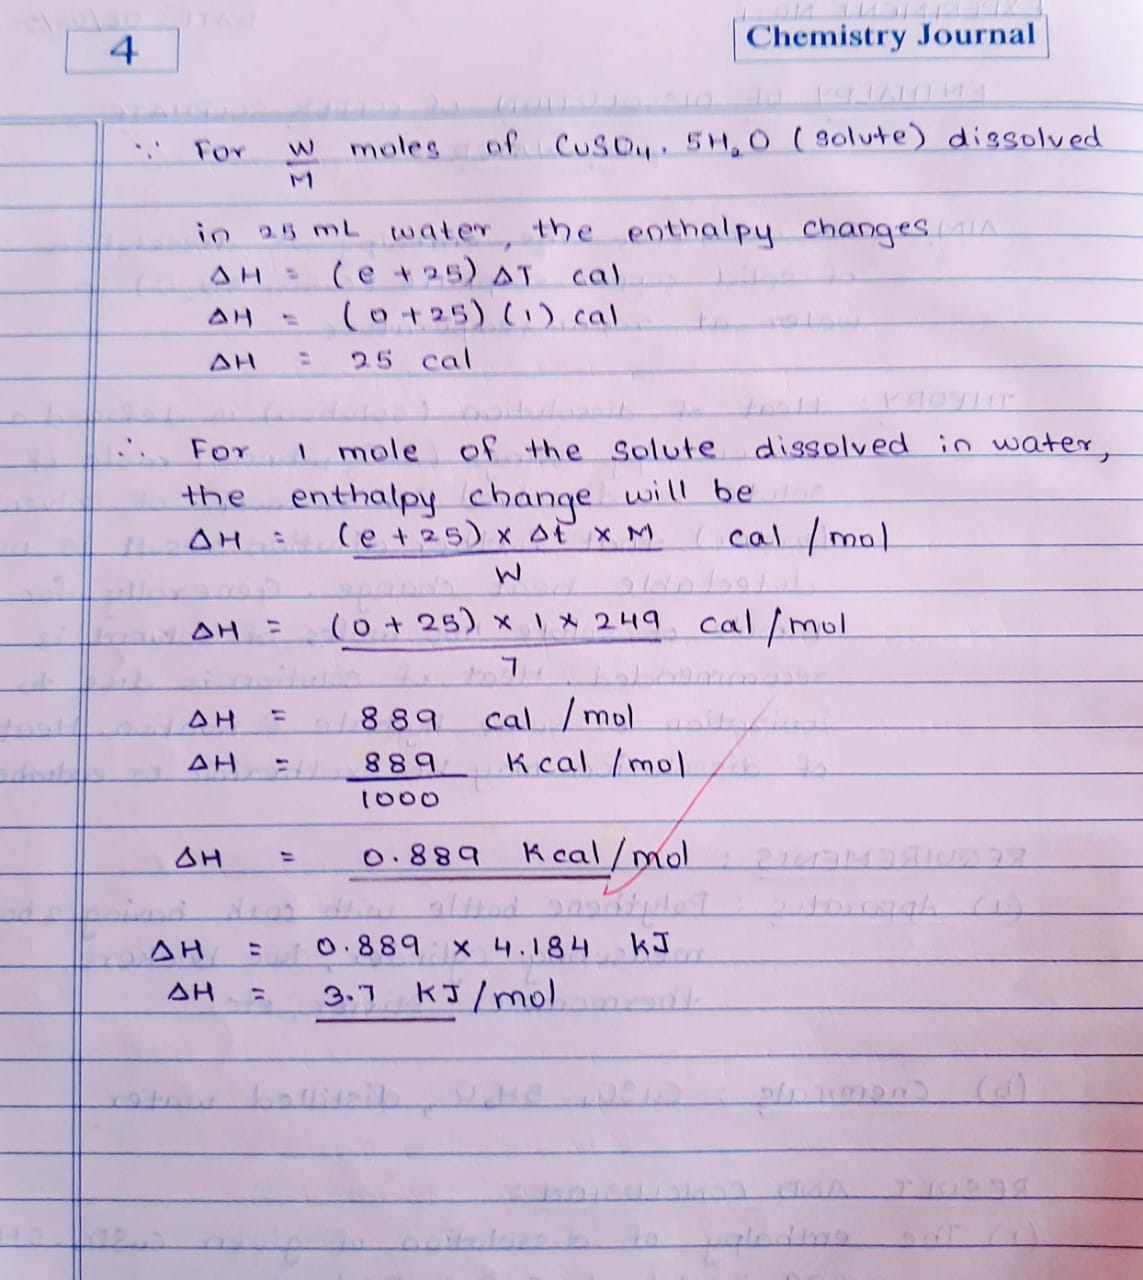 4
Chemistry Journal
∵ For W/M moles of CuSO4. 5H2O (solute) dissolved
in 25 mL water, the enthalpy changes
ΔH = (e + 25) ΔT cal
ΔH = (0 + 25) (1) cal
ΔH = 25 cal
∴ For 1 mole of the solute dissolved in water,
the enthalpy change will be
ΔH = (e + 25) x Δt x M cal /mol
W
ΔH = (0 + 25) x 1 x 249 cal /mol
7
ΔH = 889 cal /mol
ΔH = 889 Kcal /mol
1000
ΔH = 0.889 Kcal/mol
ΔH = 0.889 x 4.184 kJ
ΔH = 3.7 KJ/mol